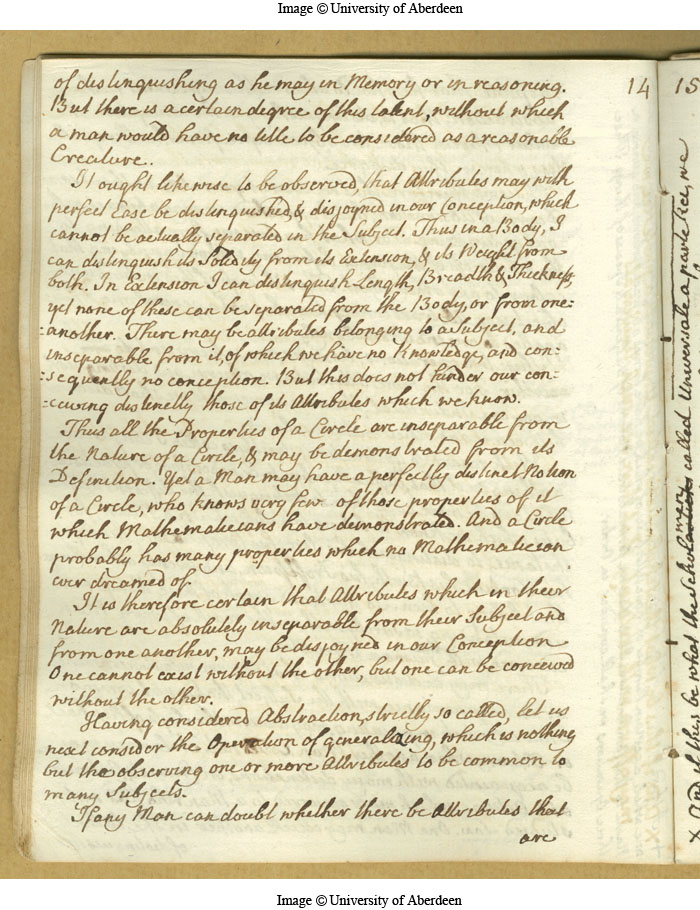 Image © University of Aberdeen
14
15
of distinguishing as he may in Memory or in reasoning.
But there is a certain degree of this talent, without which
a man would have no title to be considered as a reasonable
Creature.
It ought likewise to be observed, that Attributes may with
perfect Ease be distinguished, & disjoyned in our Conception, which
cannot be actually separated in the Subject. Thus in a Body, I
can distinguish its Solidity from its Extension, & its Weight from
both. In Extension I can distinguish Length, Breadth & Thickness,
yet none of these can be separated from the Body, or from one=
=another. There may be attributes belonging to a Subject, and
inseparable from it, of which we have no knowledge, and con=
=sequently no conception. But this does not hinder our con=
=ceiving distinctly those of its Attributes which we know.
Thus all the Properties of a Circle are inseparable from
the Nature of a Circle, & may be demonstrated from its
Definition. Yet a Man may have a perfectly distinct Notion
of a Circle, who knows very few of those properties of it
which Mathematicians have demonstrated. And a Circle
probably has many properties which no Mathematician
ever dreamed of.
It is therefore certain that Attributes which in their
Nature are absolutely inseparable from their Subject and
from one another, may be disjoyned in our Conception
One cannot exist without the other, but one can be conceived
without the other.
Having considered Abstraction, strictly so called, let us
next consider the Operation of generalizing, which is nothing
but the observing one or more Attributes to be common to
many Subjects.
If any Man can doubt whether there be Attributes that
are
x And if this be what the called Universale a parte Rei, we
Image © University of Aberdeen